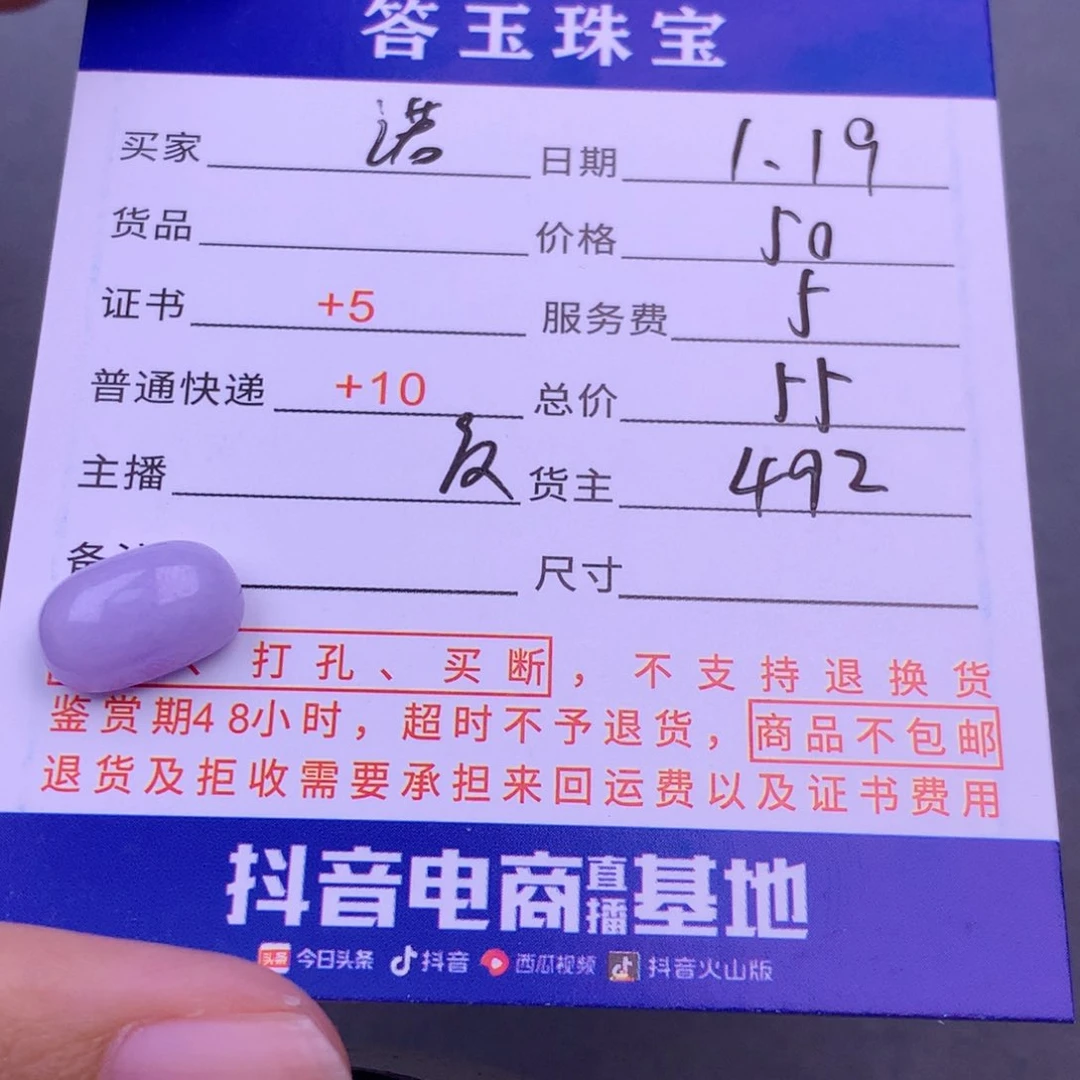 答玉珠宝
买家 诺 日期 1.19
货品 价格 50
证书 +5 服务费 5
普通快递 +10 总价 55
主播 货主 492
备 尺寸
打孔、买断，不支持退换货
鉴赏期48小时，超时不予退货，商品不包邮
退货及拒收需要承担来回运费以及证书费用
抖音电商直播基地
头条 今日头条 抖音 西瓜视频 抖音火山版